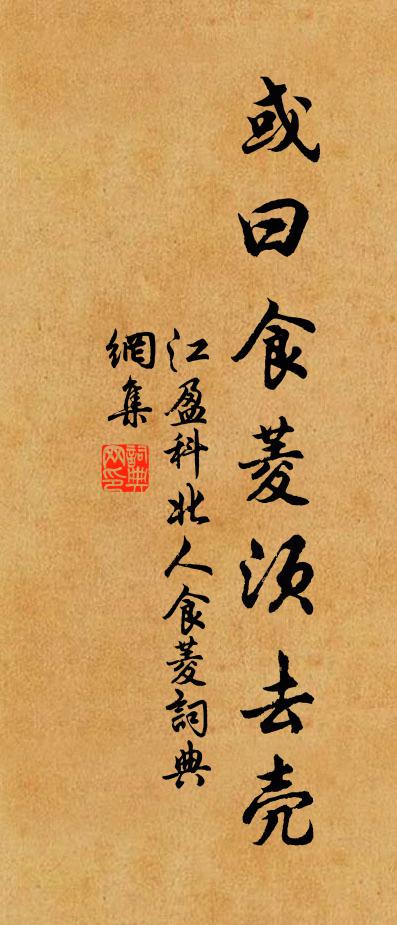 或曰食菱須去壳
江盈科北人食菱詞典
網集
詞典網印